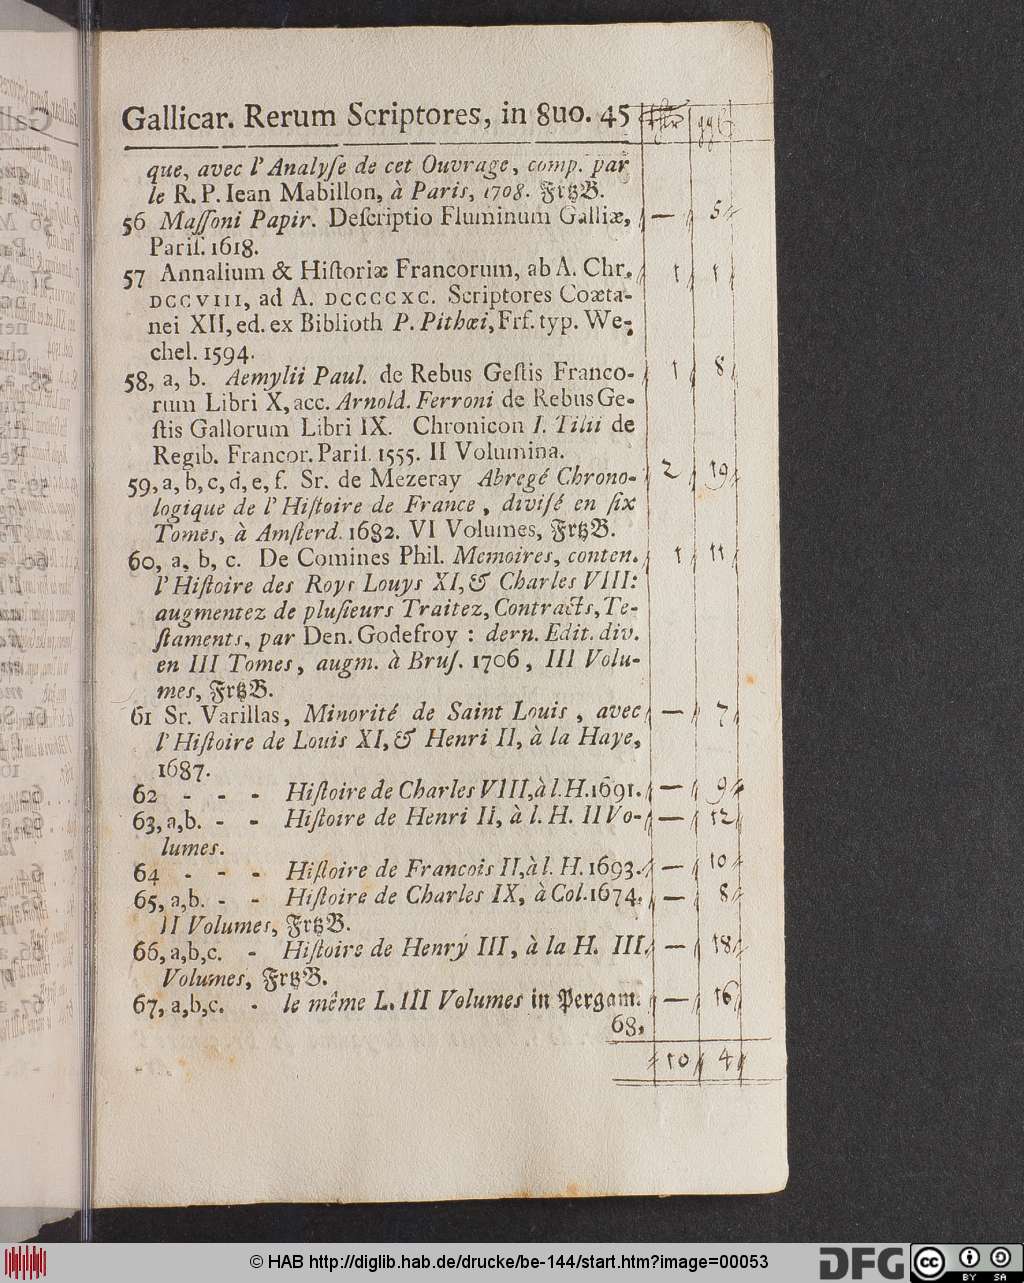 Gallicar. Rerum Scriptores, in 8uo. 45
que, avec l' Analyſe de cet Ouvrage, comp. par
le R. P. Iean Mabillon, à Paris, 1708. FrtzB.
56 Maſſoni Papir. Deſcriptio Fluminum Galliæ, — 5
Pariſ. 1618.
57 Annalium & Hiſtoriæ Francorum, ab A. Chr. 1 1
DCCVIII, ad A. DCCCCXC. Scriptores Coæta-
nei XII, ed. ex Biblioth P. Pithœi, Frf. typ. We-
chel. 1594.
58, a, b. Aemylii Paul. de Rebus Geſtis Franco- 1 8
rum Libri X, acc. Arnold. Ferroni de Rebus Ge-
ſtis Gallorum Libri IX. Chronicon I. Tilii de
Regib. Francor. Pariſ. 1555. II Volumina.
59, a, b, c, d, e, f. Sr. de Mezeray Abregé Chrono- 2 19
logique de l' Hiſtoire de France, diviſé en ſix
Tomes, à Amſterd. 1682. VI Volumes, FrtzB.
60, a, b, c. De Comines Phil. Memoires, conten. 1 11
l' Hiſtoire des Roys Louys XI, & Charles VIII:
augmentez de pluſieurs Traitez, Contracts, Te-
ſtaments, par Den. Godefroy : dern. Edit. div.
en III Tomes, augm. à Bruſ. 1706, III Volu-
mes, FrtzB.
61 Sr. Varillas, Minorité de Saint Louis, avec — 7
l' Hiſtoire de Louis XI, & Henri II, à la Haye,
1687.
62 - - - Hiſtoire de Charles VIII, à l. H. 1691. — 9
63, a, b. - - Hiſtoire de Henri II, à l. H. II Vo- — 12
lumes.
64 - - - Hiſtoire de Francois II, à l. H. 1693. — 10
65, a, b. - - Hiſtoire de Charles IX, à Col. 1674. — 8
II Volumes, FrtzB.
66, a, b, c. - Hiſtoire de Henry III, à la H. III. — 18
Volumes, FrtzB.
67, a, b, c. - le même L. III Volumes in Pergam. — 16
68,
10 4
© HAB http://diglib.hab.de/drucke/be-144/start.htm?image=00053
DFG
cc BY SA